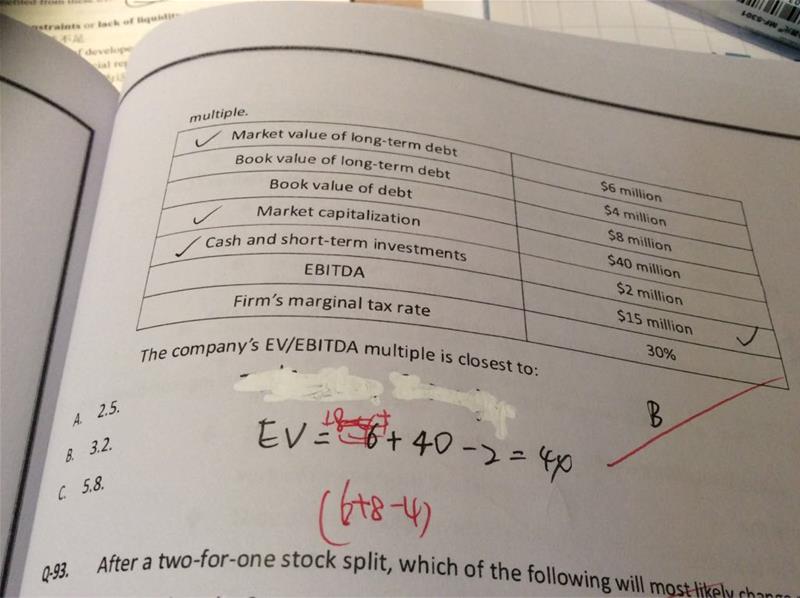 straints or lack of liquidity
不足
f develope
cial rep
MF-5301
multiple.
Market value of long-term debt $6 million
Book value of long-term debt $4 million
Book value of debt $8 million
Market capitalization $40 million
Cash and short-term investments $2 million
EBITDA $15 million
Firm's marginal tax rate 30%
The company's EV/EBITDA multiple is closest to:
A. 2.5.
B. 3.2.
C. 5.8.
B
EV = 6 + 40 - 2 = 44
(6+8-4)
Q-93. After a two-for-one stock split, which of the following will most likely change